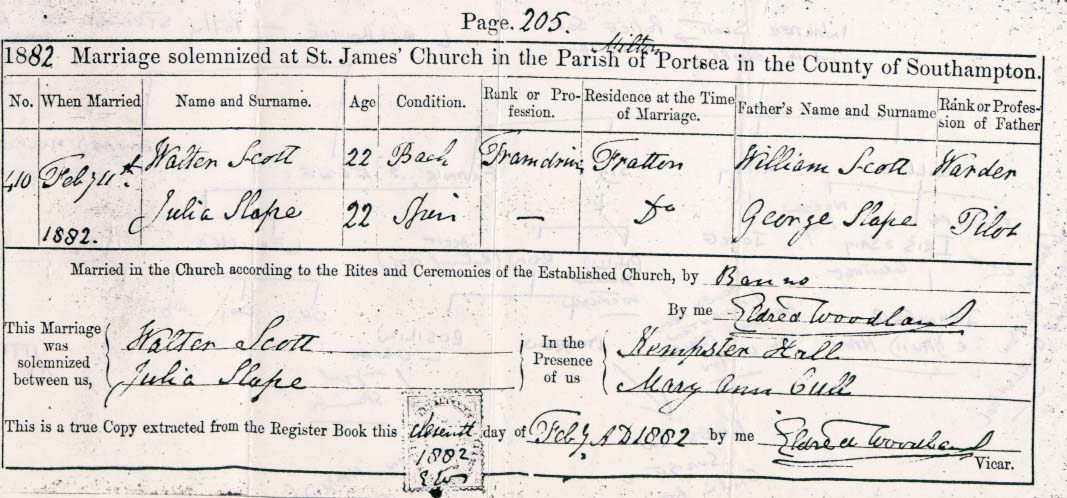 Page. 205.
Milton
1882 Marriage solemnized at St. James' Church in the Parish of Portsea in the County of Southampton.
No. When Married Name and Surname. Age Condition. Rank or Profession. Residence at the Time of Marriage. Father's Name and Surname Rank or Profession of Father
410 Feby 11th 1882. Walter Scott 22 Bach Tramdriver Fratton William Scott Warder
Julia Slape 22 Spin — Do George Slape Pilot
Married in the Church according to the Rites and Ceremonies of the Established Church, by Banns
By me Eldred Woodland
This Marriage was solemnized between us, Walter Scott Julia Slape In the Presence of us Kempster Hall Mary Ann Cull
This is a true Copy extracted from the Register Book this eleventh day of Feby AD 1882 by me Eldred Woodland
1882
EW
Vicar.